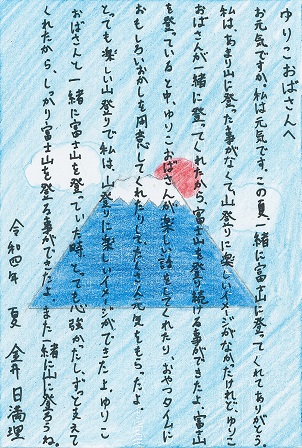 ゆりこおばさんへ
お元気ですか。私は元気です。この夏、一緒に富士山に登ってくれてありがとう。
私は、あまり山に登った事がなくて、山登りに楽しいイメージがなかったけれど、ゆりこ
おばさんが一緒に登ってくれたから、富士山を登り続ける事ができたよ。富士山
を登っている途中、ゆりこおばさんが楽しい話をしてくれたり、おやつタイムに
おもしろいおかしを用意してくれたりして、たくさん元気をもらったよ。
とっても楽しい山登りで、私は、山登りに楽しいイメージができたよ。ゆりこ
おばさんと一緒に富士山を登っていた時、とっても心強かったし、ずっと支えて
くれたから、しっかり富士山を登る事ができたよ。また一緒に山に登ろうね。
令和四年 夏 金井日満理